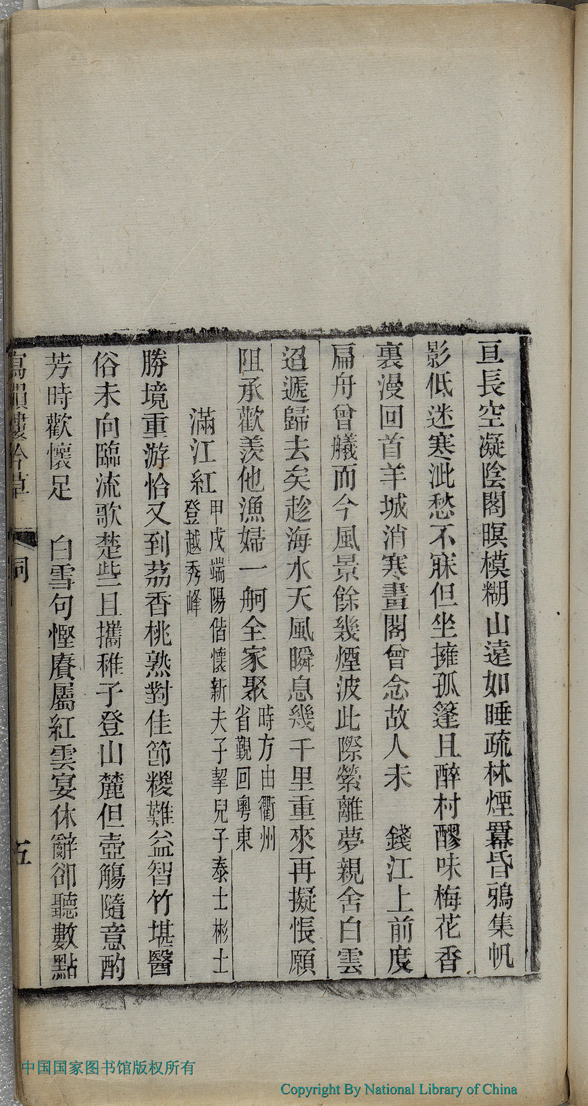 亘長空凝陰閣暝模糊山遠如睡疏林煙羃昏鴉集帆
影低迷寒泚愁不寐但坐擁孤篷且醉村醪味梅花香
裏漫回首羊城消寒畫閣曾念故人未　錢江上前度
扁舟曾艤而今風景餘幾煙波此際縈離夢親舍白雲
迢遞歸去矣趁海水天風瞬息幾千里重來再擬悵願
阻承歡羨他漁婦一舸全家聚時方由衢州
省覲回粵東
滿江紅甲戌端陽偕懷新夫子挈兒子泰士彬士
登越秀峰
勝境重游恰又到荔香桃熟對佳節糉難益智竹堪醫
俗未向臨流歌楚些且攜稚子登山麓但壺觴隨意酌
芳時歡懷足　白雪句慳賡屬紅雲宴休辭卻聽數點
詞
五
中国国家图书馆版权所有
Copyright By National Library of China